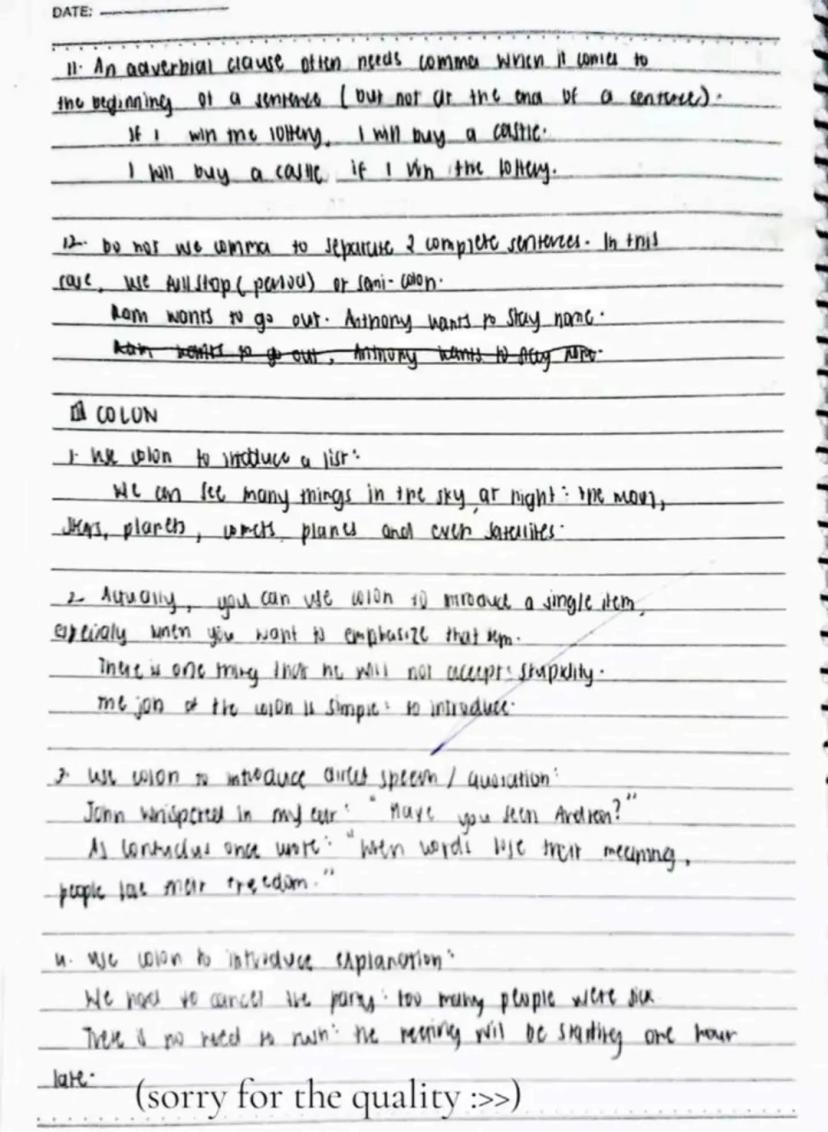 DATE:
11. An adverbial clause often needs comma when it comes to
the beginning of a sentence (but not at the end of a sentence).
If I win the lottery, I will buy a castle.
I will buy a castle if I win the lottery.
12. Do not use comma to separate 2 complete sentences. In this
case, use full stop (period) or semi-colon.
Ram wants to go out. Anthony wants to stay home.
Ram wants to go out, Anthony wants to stay home.
COLON
1. Use colon to introduce a list:
We can see many things in the sky at night: the moon,
stars, planets, comets, planes and even satellites.
2. Actually, you can use colon to introduce a single item,
especially when you want to emphasize that item.
There is one thing that he will not accept: stupidity.
The job of the colon is simple: to introduce.
3. Use colon to introduce direct speech / quotation:
John whispered in my ear: "Have you seen Andrea?"
As Confucius once wrote: "When words lose their meaning,
people lose their freedom."
4. Use colon to introduce explanation:
We had to cancel the party: too many people were sick
There is no need to rush: the meeting will be starting one hour
late.
(sorry for the quality :>>)